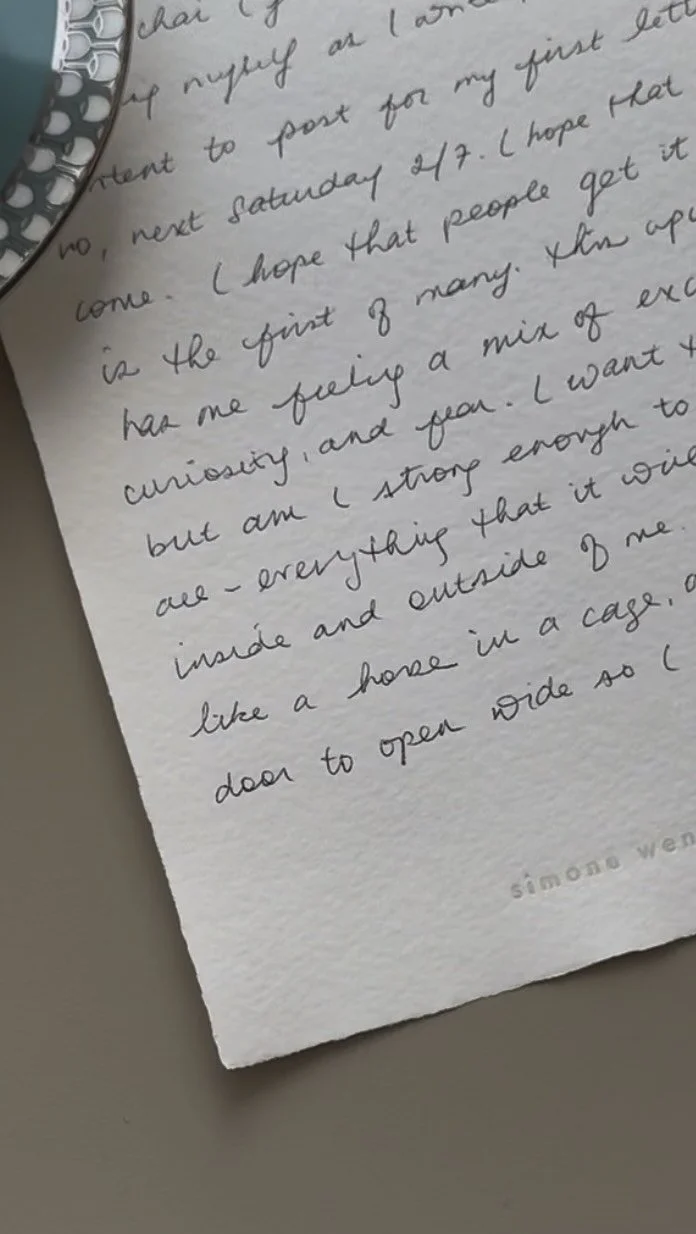 chai (
myself as I
to post for my first
no, next Saturday 2/7. I hope that
come. I hope that people get it
is the first of many. this
has me feeling a mix of
curiosity, and fear. I want
but am I strong enough to
all - everything that it
inside and outside of me.
like a horse in a cage,
door to open wide so I
simone wen